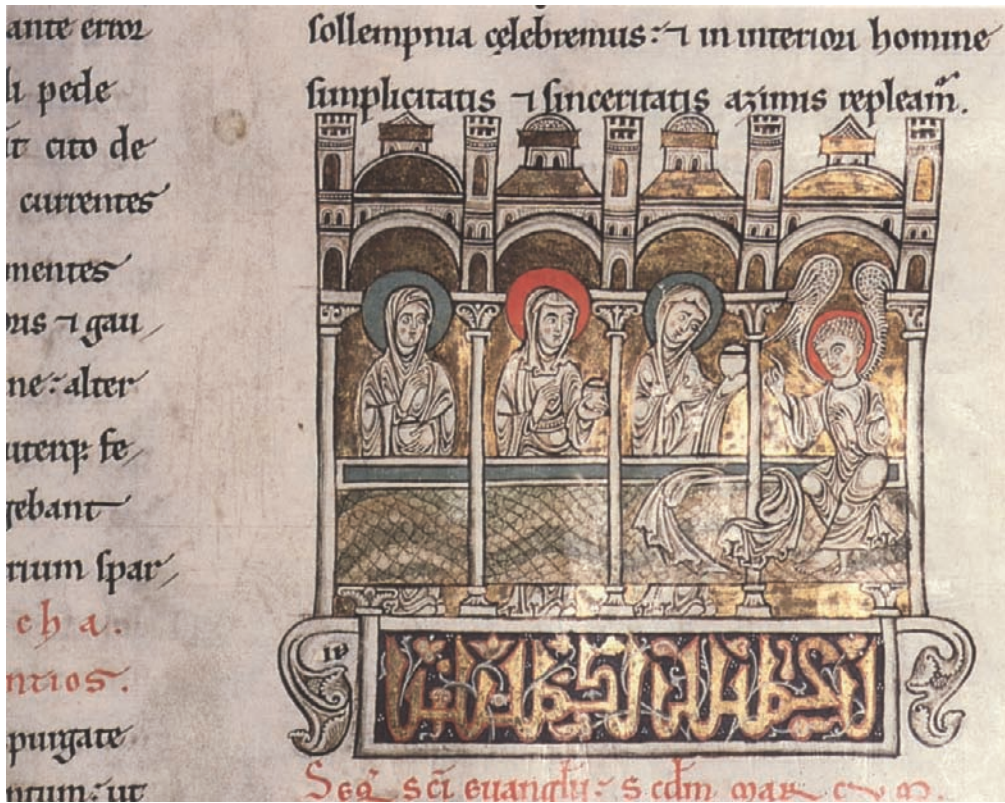 ante error
li pede
it cito de
currentes
mentes
oris ⁊ gau
ne: alter
utemq; fe
gebant
rium spar
cha.
ntios.
purgate
ntum: ut
sollempnia cęlebremus: ⁊ in interiori homine
simplicitatis ⁊ sinceritatis azimis repleam̃.
Seq̃ sc̄i euanglii: s̄ cdm mar